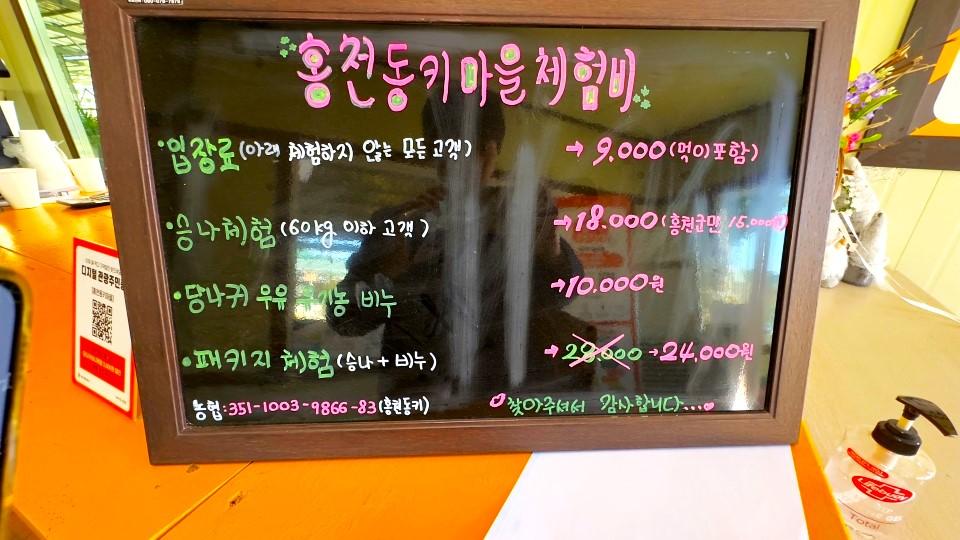 홍천동키마을체험비
•입장료(아래 체험하지 않는 모든 고객) → 9.000(먹이포함)
•승나체험(60kg 이하 고객) → 18.000(홍천군민 15.000원)
•당나귀 우유 유기농 비누 → 10.000원
•패키지 체험(승나+비누) → 28.000 → 24,000원
농협:351-1003-9866-83(홍천동키) 찾아주셔서 감사합니다...
디지털 관광주민증
Lifebuoy
Total